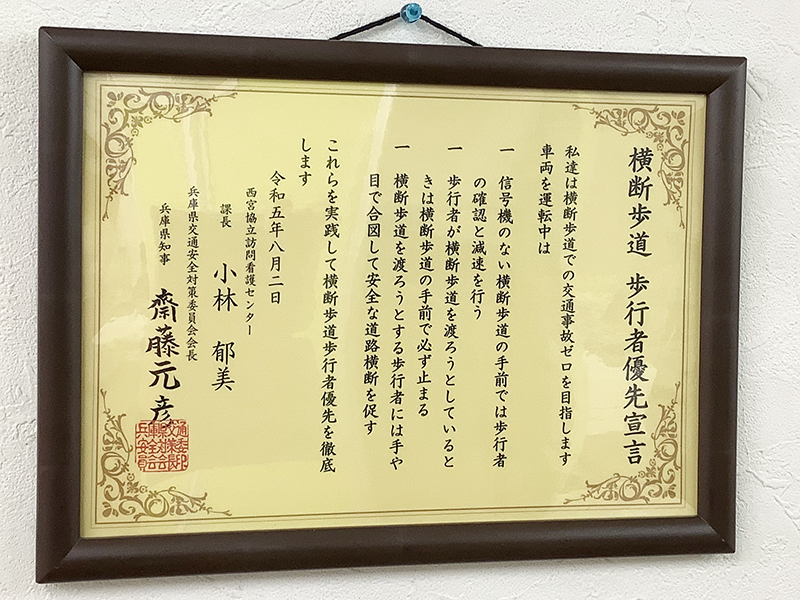 横断歩道 歩行者優先宣言
私達は横断歩道での交通事故ゼロを目指します
車両を運転中は
一 信号機のない横断歩道の手前では歩行者
の確認と減速を行う
一 歩行者が横断歩道を渡ろうとしていると
きは横断歩道の手前で必ず止まる
一 横断歩道を渡ろうとする歩行者には手や
目で合図して安全な道路横断を促す
これらを実践して横断歩道歩行者優先を徹底
します
令和五年八月二日
西宮協立訪問看護センター
課長 小林 郁美
兵庫県交通安全対策委員会会長
兵庫県知事 齋藤元彦